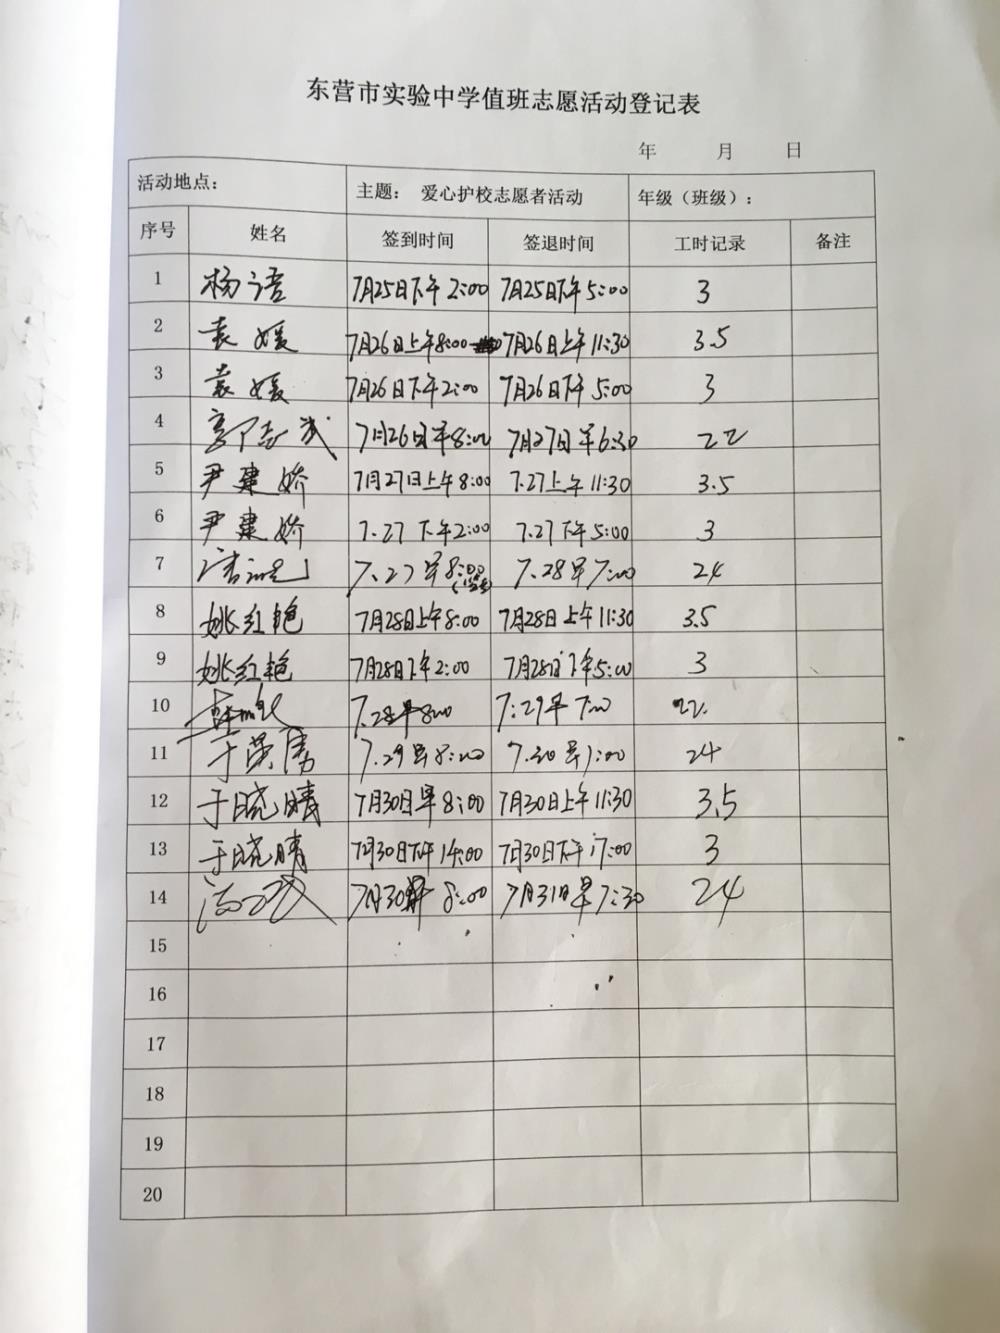 东营市实验中学值班志愿活动登记表
年 月 日
活动地点： 主题： 爱心护校志愿者活动 年级（班级）：
序号 姓名 签到时间 签退时间 工时记录 备注
1 杨语 7月25日下午2:00 7月25日下午5:00 3
2 袁媛 7月26日上午8:00 7月26日上午11:30 3.5
3 袁媛 7月26日下午2:00 7月26日下午5:00 3
4 7月26日早8:00 7月27日早6:30 22
5 尹建娇 7月27日上午8:00 7.27上午11:30 3.5
6 尹建娇 7.27下午2:00 7.27下午5:00 3
7 7.27早8:00 7.28早7:00 24
8 姚红艳 7月28日上午8:00 7月28日上午11:30 3.5
9 姚红艳 7月28日下午2:00 7月28日下午5:00 3
10 7.28早8:00 7.29早7:00 22
11 7.29早8:00 7.30早7:00 24
12 于晓晴 7月30日早8:00 7月30日上午11:30 3.5
13 于晓晴 7月30日下午14:00 7月30日下午17:00 3
14 7月30 8:00 7月31日早7:30 24
15
16
17
18
19
20